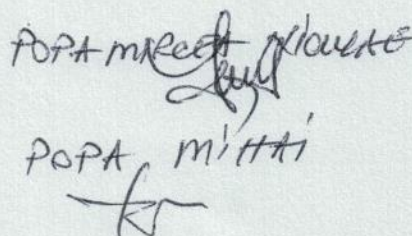 POPA MIRCEA NICOLAE
POPA MIHAI